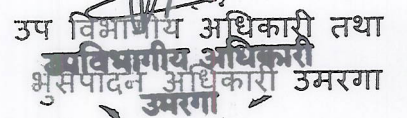 उप विभागीय अधिकारी तथा
उपविभागीय अधिकारी
भुसंपादन अधिकारी उमरगा
उमरगा